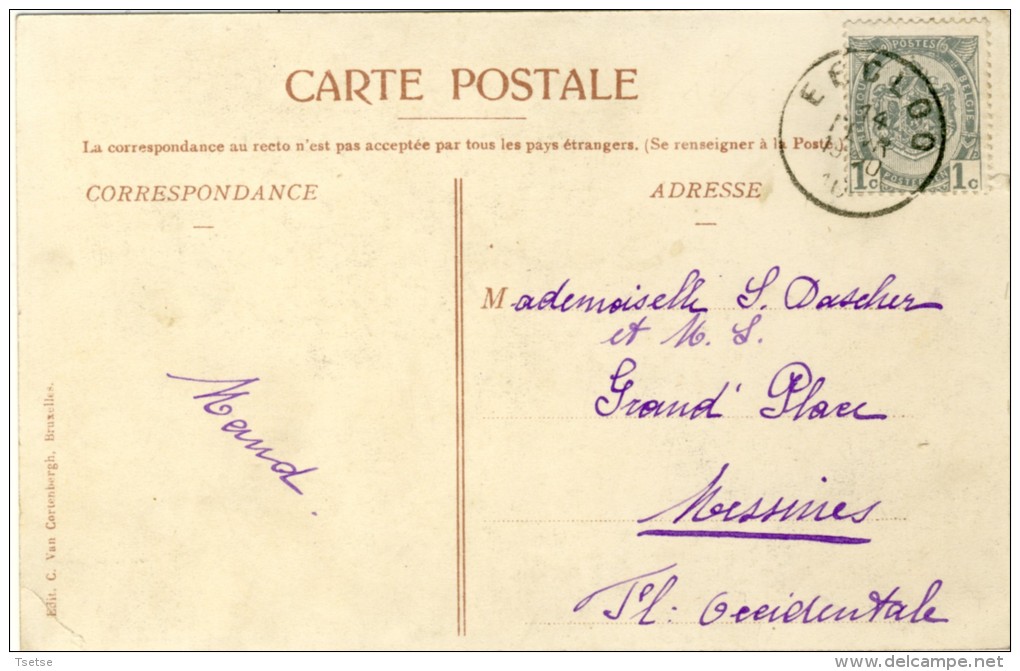 CARTE POSTALE
La correspondance au recto n'est pas acceptée par tous les pays étrangers. (Se renseigner à la Poste
CORRESPONDANCE
ADRESSE
EECLOO
14
POSTES
BELGIE
1c 1c
POSTERIJEN
Mademoiselle S. Dascher
et M. S.
Grand' Place
Messines
Fl. Occidentale
Maud.
Edit. C. Van Cortenbergh, Bruxelles.
Tsetse
delcampe.net